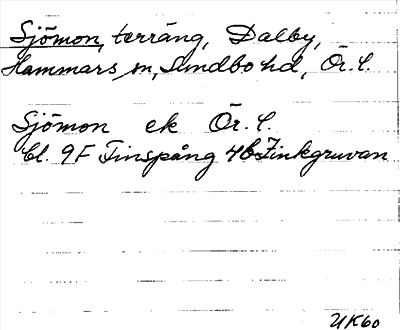 Sjömon, terräng, Dalby,
Hammars sn, Sundbo hd, Ör. l.
Sjömon ek Ör. l.
bl. 9F Finspång 4b Zinkgruvan
UK60